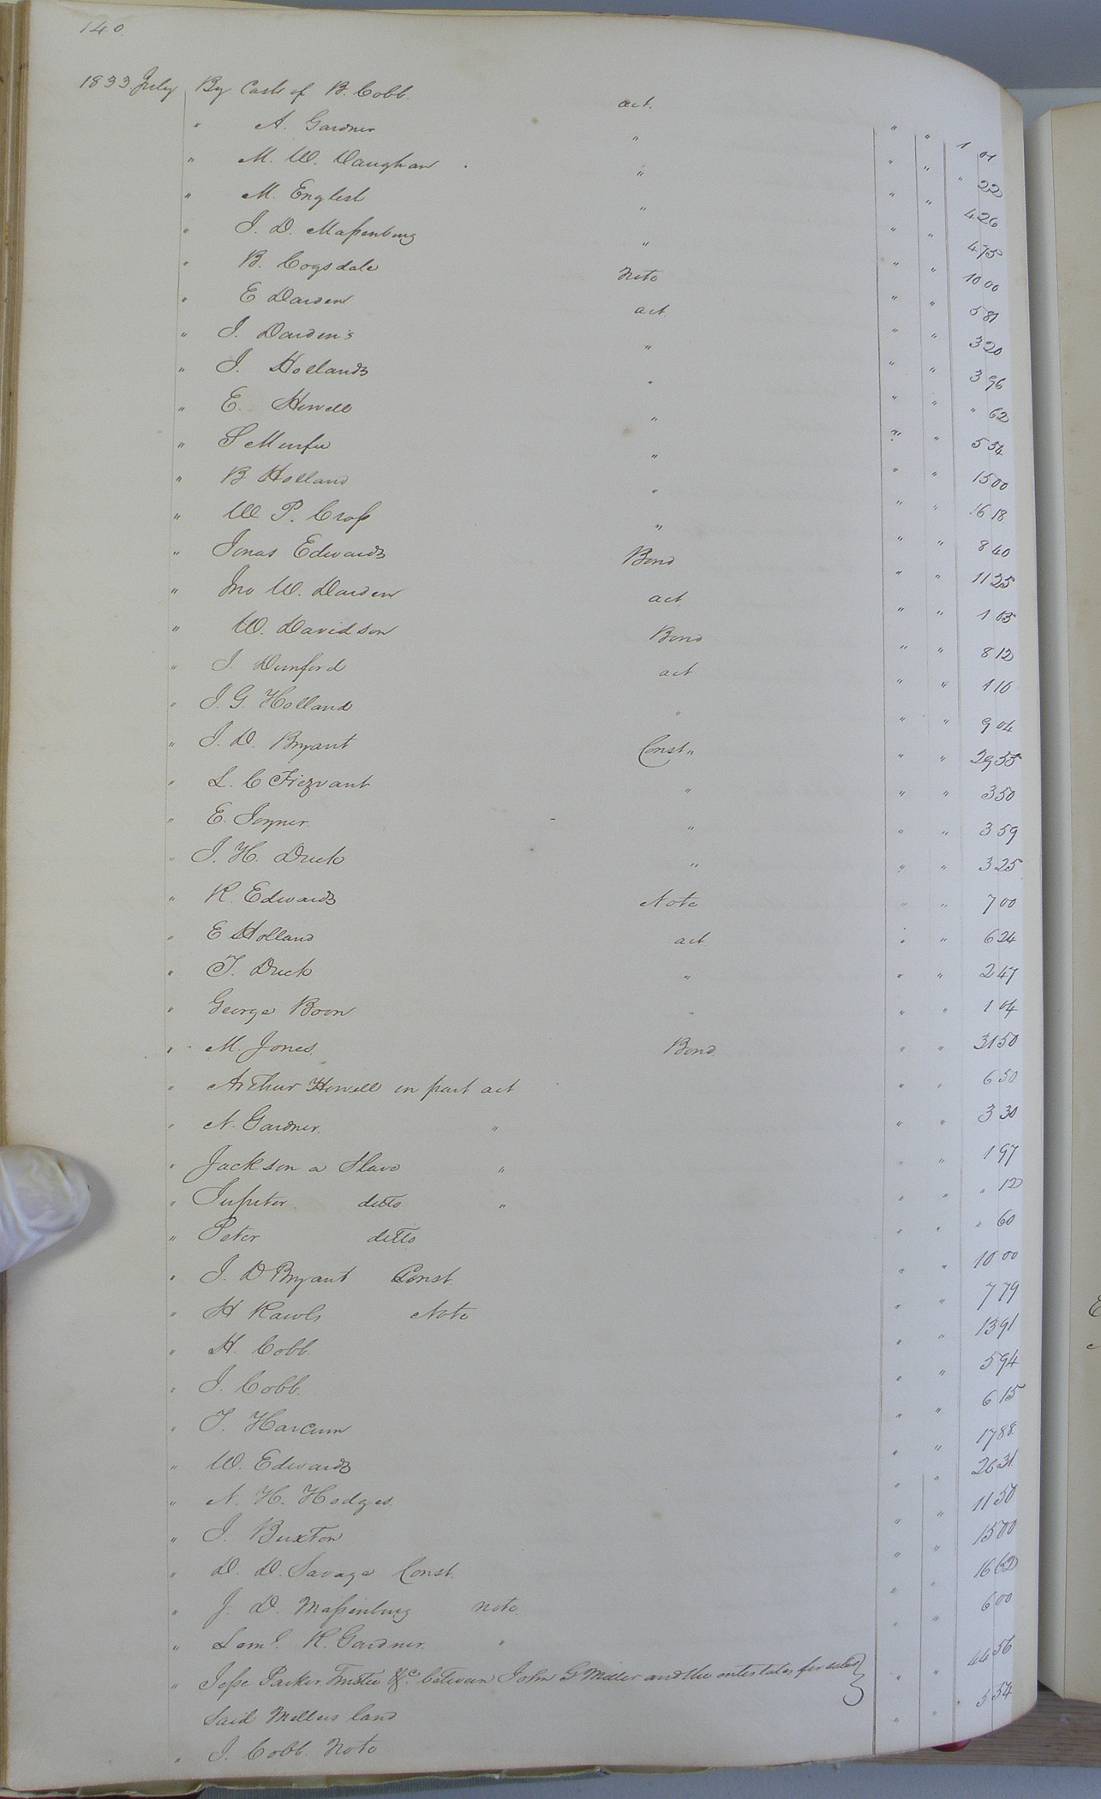 140.
1833 July By Cash of B. Cobb. act. " " 1 01
" A. Gardner " " " " 22
" M. W. Vaughan " " " 4 26
" M. English " " " 4 75
" J. D. Maſsenburg " " " 10 00
" B. Cogsdale Note " " 5 81
" E Darden act " " 3 20
" J. Darden's " " " 3 96
" J. Hollands " " " " 62
" E. Howell " " " 5 54
" S " " " 15 00
" B Holland " " " 16 18
" W P. Croſs " " " 8 40
" Jonas Edwards Bond " " 11 25
" Jno W. Darden act " " 1 03
" W. Davidson Bond " " 8 12
" J. Dunford act " " 1 10
" J. G. Holland " " " 9 04
" J. D. Bryant Const " " " 29 55
" L. C Frizvant " " " 3 50
" E. Joyner " " " 3 59
" J. H. Duck " " " 3 25
" R. Edwards Note " " 7 00
" E Holland act " " 6 24
" T. Duck " " " 2 47
" George Boon " " " 1 04
" M. Jones. Bond " " 31 50
" Arthur Howell in part act " " 6 50
" N. Gardner. " " " 3 30
" Jackson a Slave " " " 1 97
" Jupiter. ditto " " " " 12
" Peter ditto " " " 60
" J. D Bryant Const " " 10 00
" H Rawls Note " " 7 79
" H. Cobb. " " 13 91
" J. Cobb. " " 5 94
" T. Harcum " " 6 15
" W. Edwards " " 17 88
" N. H. Hodges. " " 26 31
" J. Buxton " " 11 50
" D. D. Savage Const. " " 15 00
" J. D. Maſsenburg note " " 16 62
" Leml. K. Gardner. " " " 6 00
" Jeſse Parker Trustee &c. between John G Miller and the intestates for sale of
Said Millers land " " 44 56
" J. Cobb. Note " " " 5 54